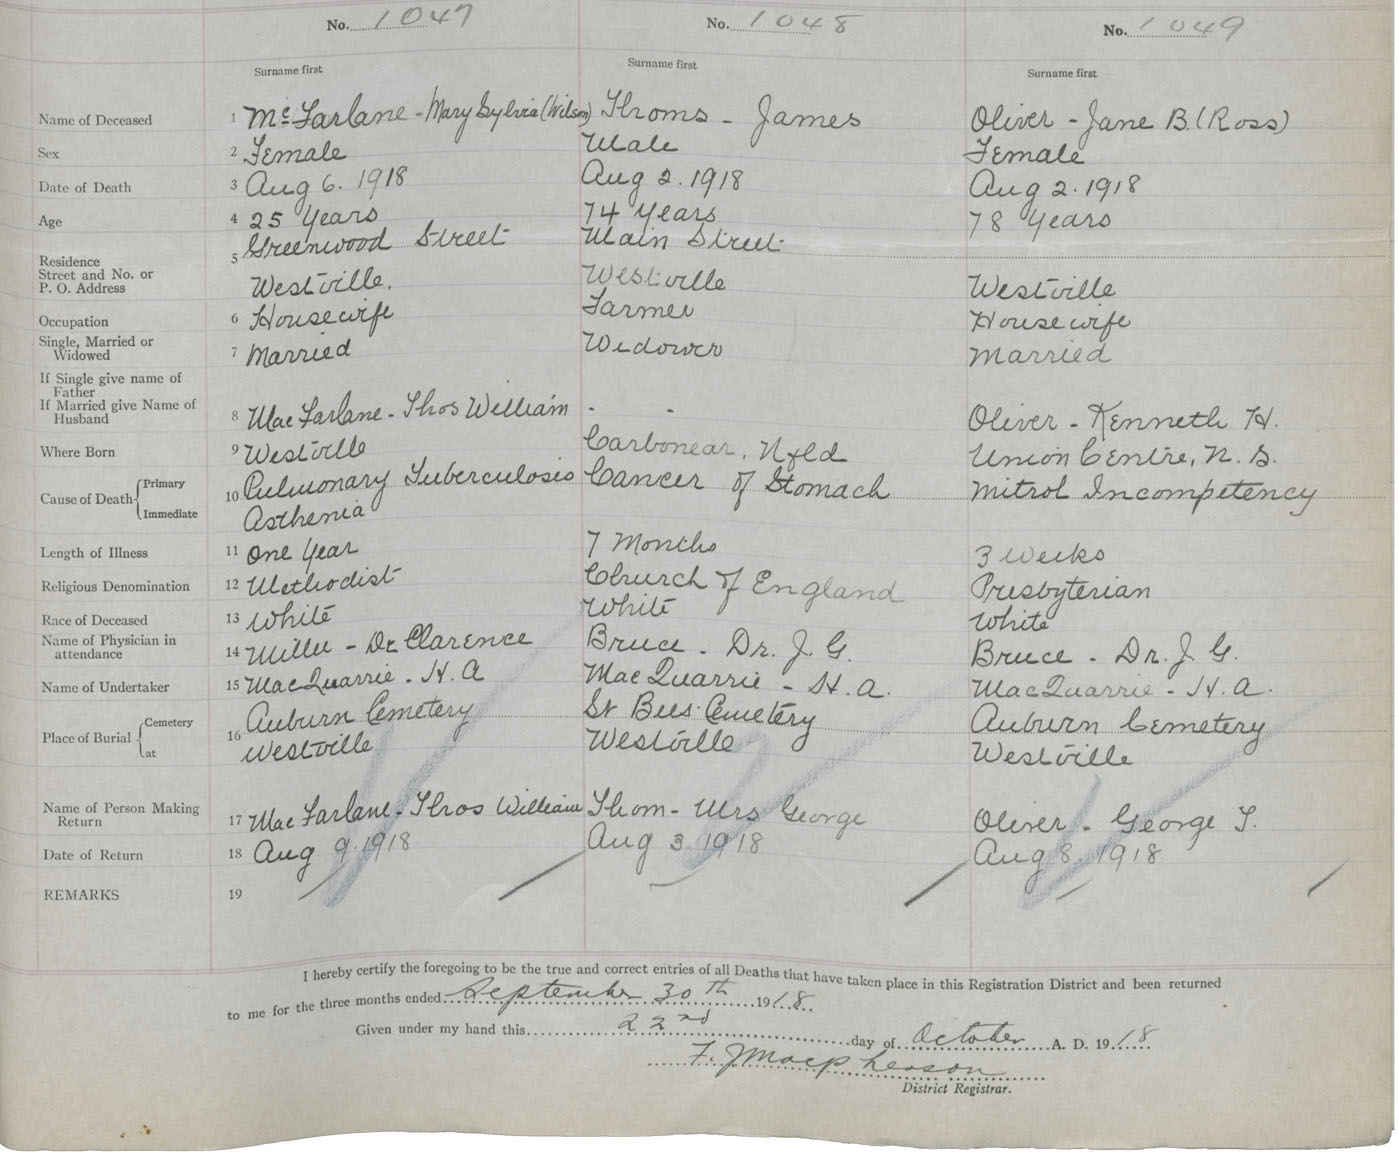 No. 1047 No. 1048 No. 1049
Surname first Surname first Surname first
Name of Deceased 1 McFarlane - Mary Sylvia (Wilson) Throms - James Oliver - Jane B. (Ross)
Sex 2 Female Male Female
Date of Death 3 Aug 6. 1918 Aug 2. 1918 Aug 2. 1918
Age 4 25 Years 74 Years 78 Years
Residence 5 Greenwood Street Main Street
Street and No. or
P. O. Address Westville. Westville Westville
Occupation 6 Housewife Farmer Housewife
Single, Married or
Widowed 7 Married Widower Married
If Single give name of
Father
If Married give Name of
Husband 8 MacFarlane - Thos William - - Oliver - Kenneth H.
Where Born 9 Westville Carbonear, Nfld Union Centre, N. S.
Cause of Death Primary 10 Pulmonary Tuberculosis Cancer of Stomach Mitrol Incompetency
Immediate Asthenia
Length of Illness 11 One Year 7 Months 3 Weeks
Religious Denomination 12 Methodist Church of England Presbyterian
Race of Deceased 13 White White White
Name of Physician in
attendance 14 Miller - Dr. Clarence Bruce - Dr. J. G. Bruce - Dr. J. G.
Name of Undertaker 15 MacQuarrie - H. A MacQuarrie - H. A. MacQuarrie - H. A.
Place of Burial Cemetery 16 Auburn Cemetery St Bees Cemetery Auburn Cemetery
at Westville Westville Westville
Name of Person Making
Return 17 MacFarlane - Thos William Thom - Mrs George Oliver - George T.
Date of Return 18 Aug 9. 1918 Aug 3. 1918 Aug 8. 1918
REMARKS 19
I hereby certify the foregoing to be the true and correct entries of all Deaths that have taken place in this Registration District and been returned
to me for the three months ended September 30th 1918.
Given under my hand this 22nd day of October A. D. 1918
F. J Macpherson
District Registrar.